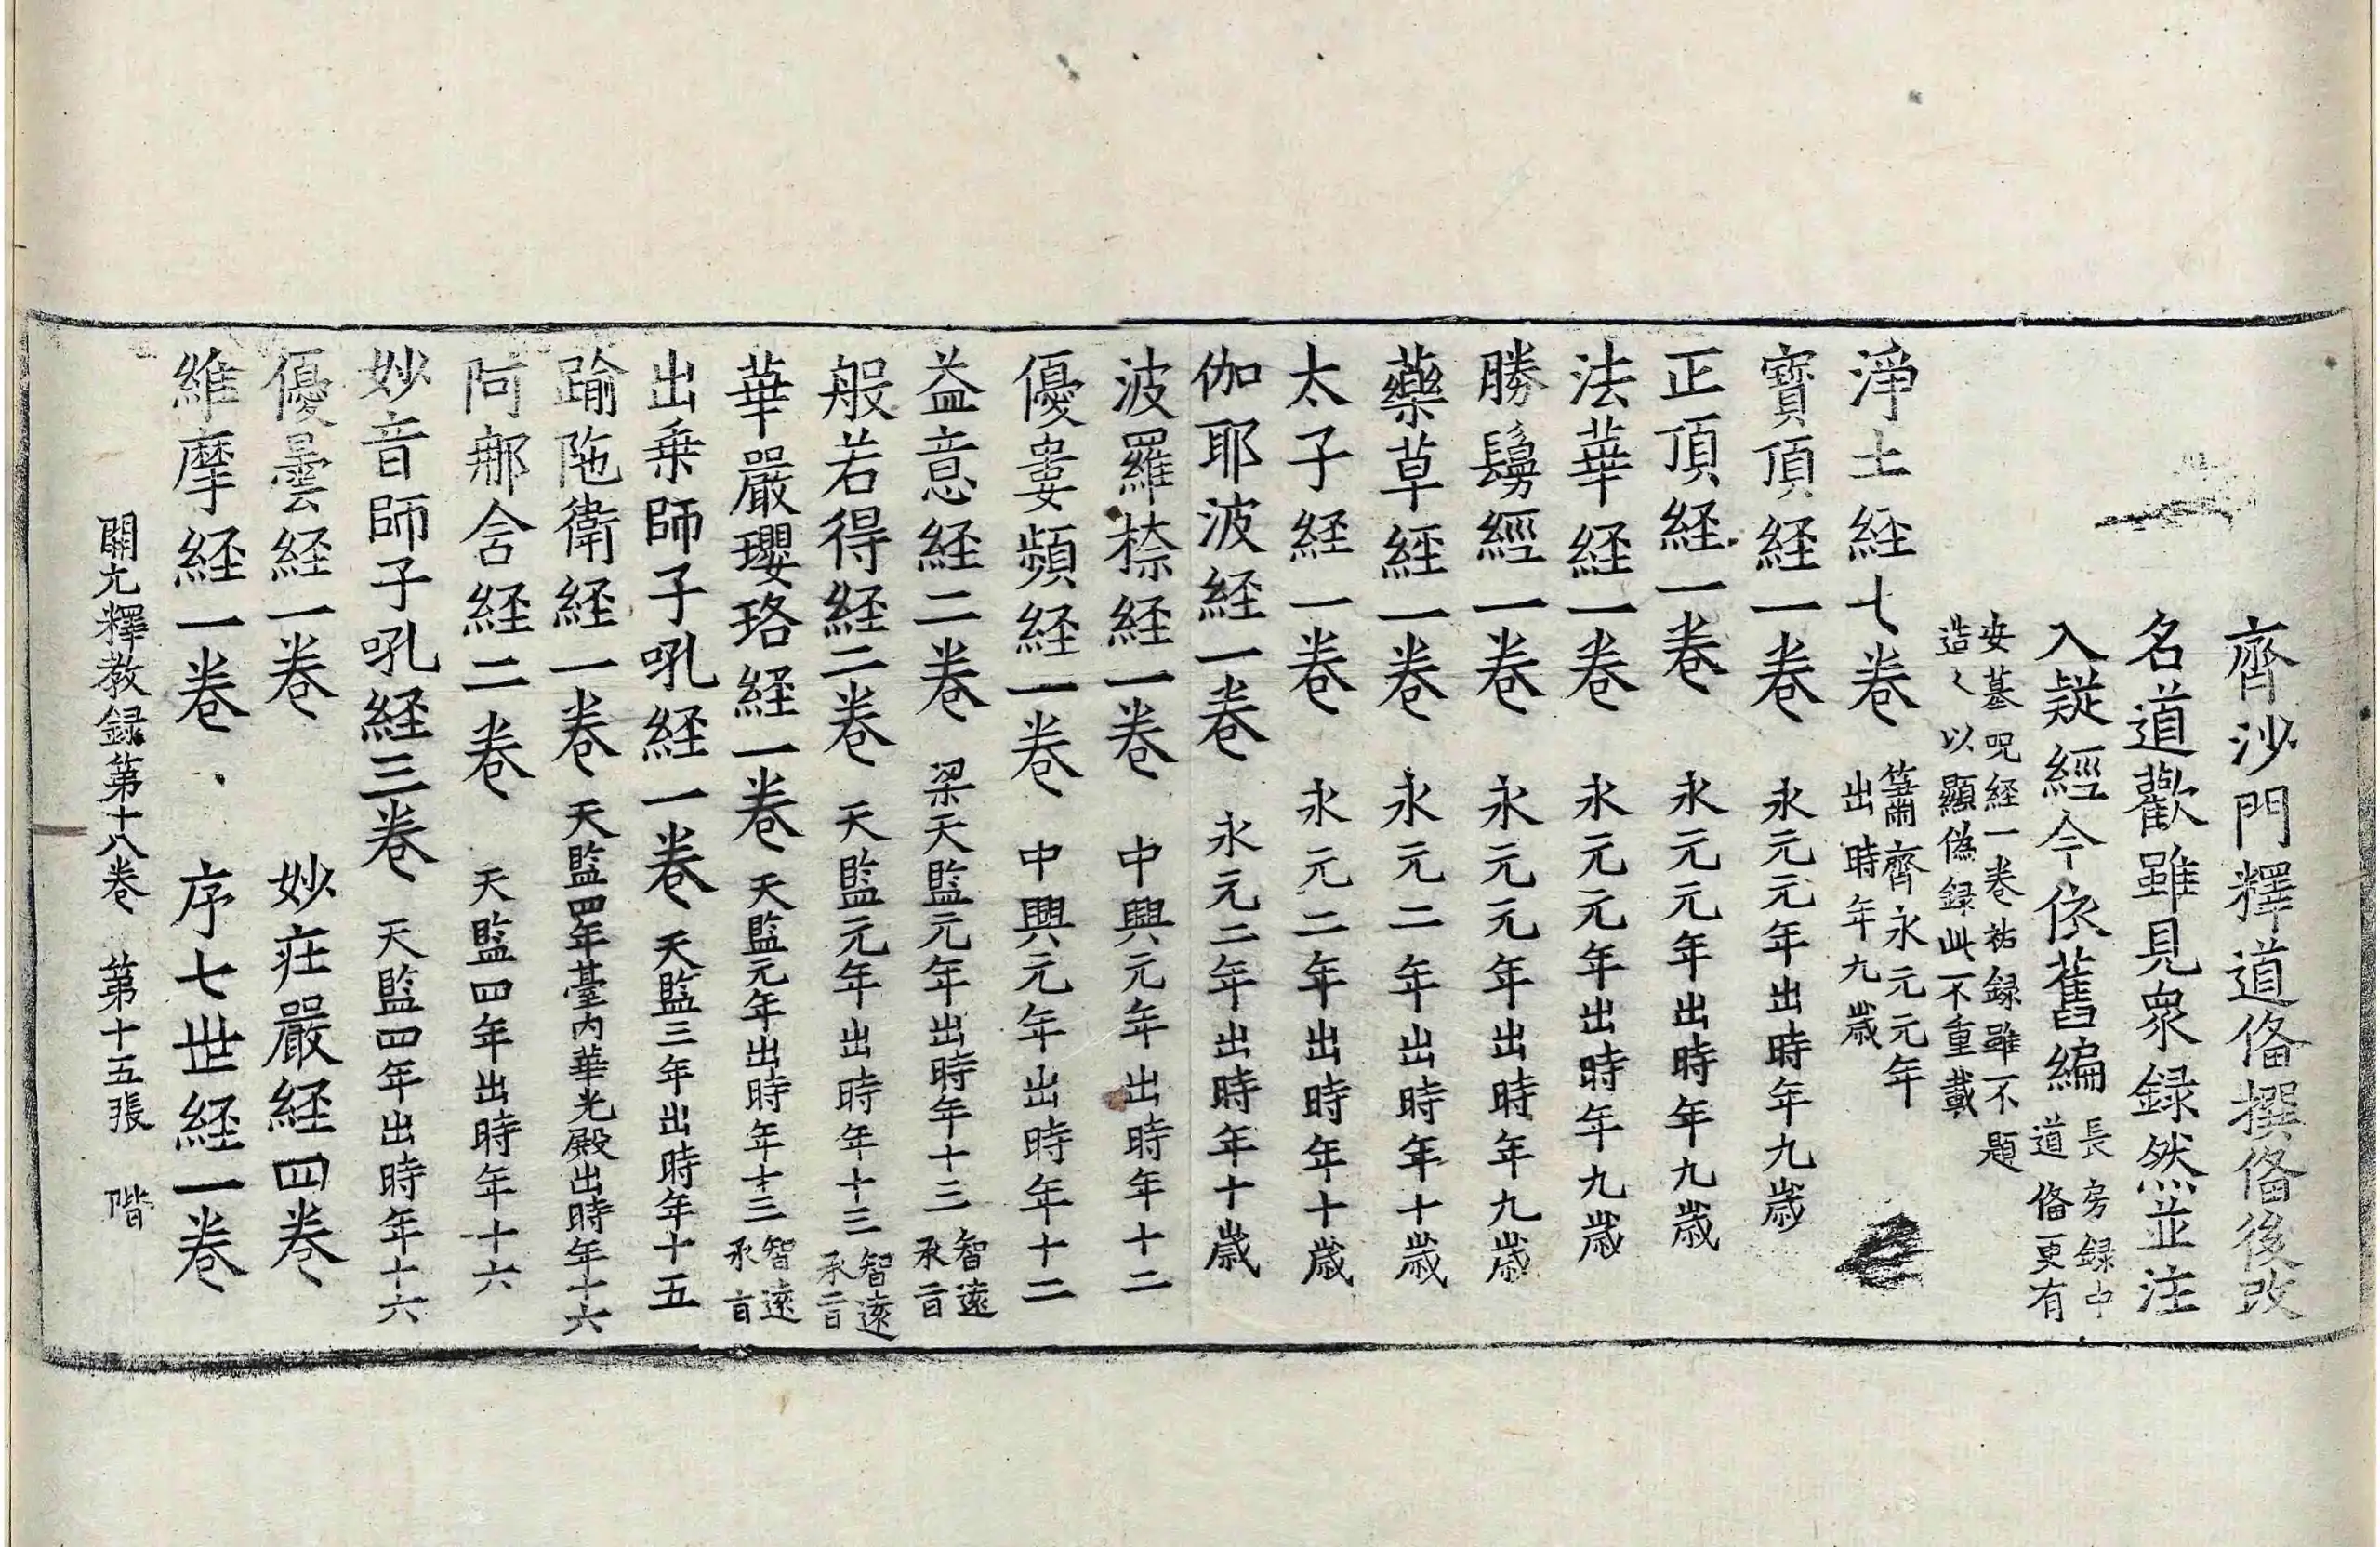 齊沙門釋道俻撰俻後改
名道歡雖見衆録然並注
入疑經今依舊編
長房録中
道俻更有
安墓呪経一卷祐録雖不題
造之以顯偽録此不重載
淨土経七卷
簫齊永元元年
出時年九歲
寶頂経一卷 永元元年出時年九歲
正頂経一卷 永元元年出時年九歲
法華経一卷 永元元年出時年九歲
勝鬘經一卷 永元元年出時年九歲
藥草經一卷 永元二年出時年十歲
太子経一卷 永元二年出時年十歲
伽耶波経一卷 永元二年出時年十歲
波羅㮈経一卷 中興元年出時年十二
優婁頻経一卷 中興元年出時年十二
益意経二卷 梁天監元年出時年十三
智遠
承旨
般若得経二卷 天監元年出時年十三
智遠
承旨
華嚴瓔珞経一卷 天監元年出時年十三
智遠
承旨
出乗師子吼経一卷 天監三年出時年十五
踰陁衛経一卷 天監四年臺內華光殿出時年十六
阿那含経二卷 天監四年出時年十六
妙音師子吼経三卷 天監四年出時年十六
優曇経一卷 妙莊嚴経四卷
維摩経一卷 序七世経一卷
開元釋教録第十八卷 第十五張 階